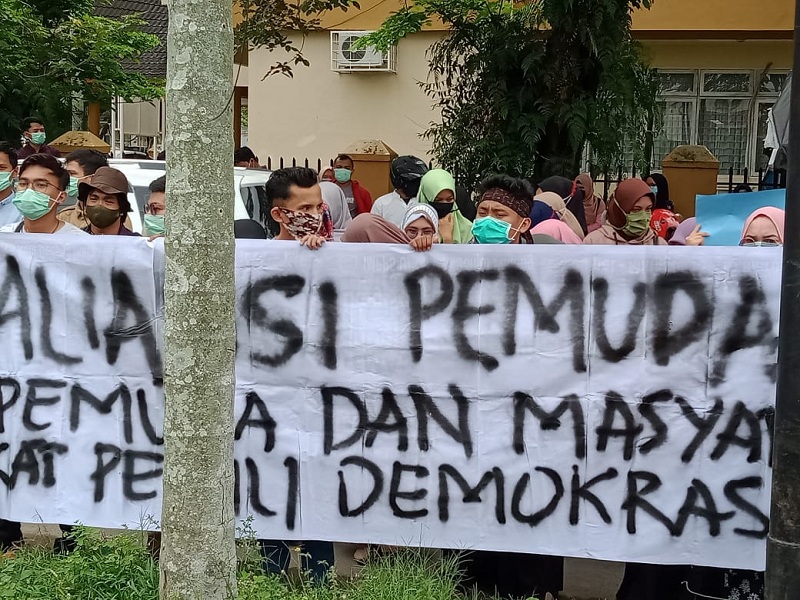 ALIA SI PEMUDA
PEMU A DAN MASYA
KAT PE LI DEMOKRAS